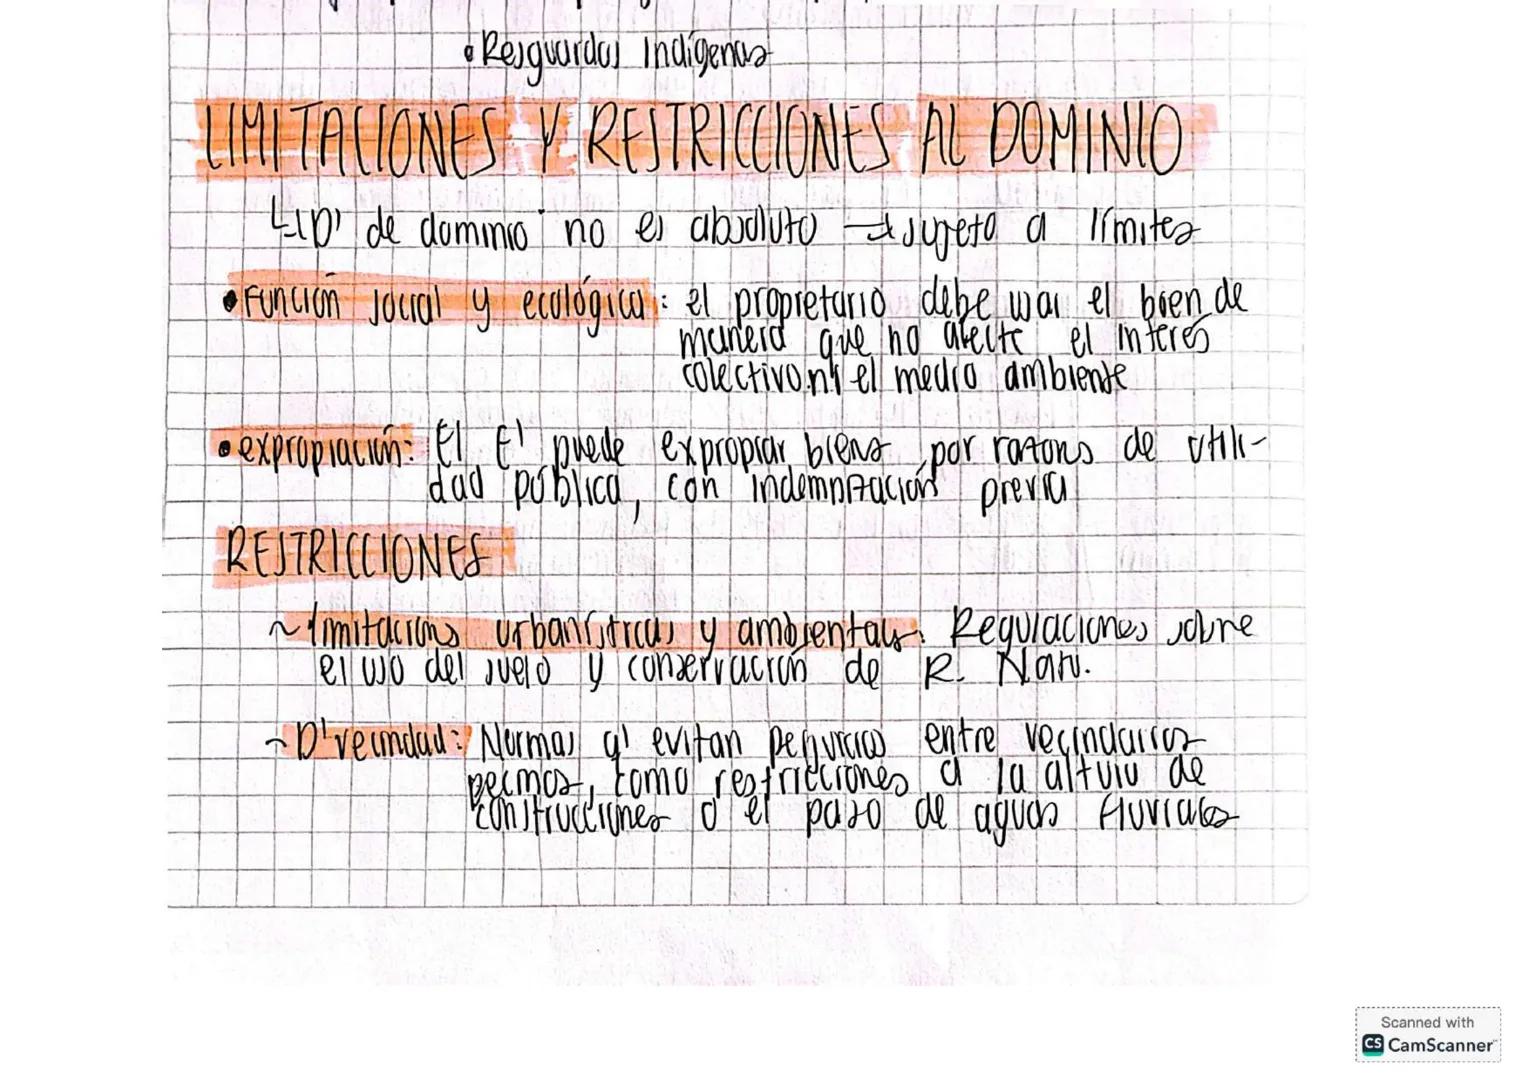 • Resguardos Indígenas
LIMITACIONES Y RESTRICCIONES AL DOMINIO
↳ D' de dominio no es absoluto → sujeto a límites
• Función social y ecológica: el propietario debe usar el bien de
manera que no afecte el interés
colectivo ni el medio ambiente
• expropiación: El E' puede expropiar bienes por razones de utili-
dad pública, con indemnización previa
RESTRICCIONES
~ limitaciones urbanísticas y ambientales: Regulaciones sobre
el uso del suelo y conservación de R. Natu.
~ D' vecindad: Normas q' evitan perjuicios entre vecindarios
como restricciones a la altura de
construcciones o el paso de aguas fluviales
Scanned with
CS CamScanner